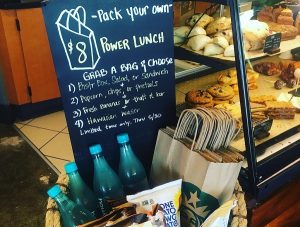 -Pack your own-
$8
POWER LUNCH
GRAB A BAG & CHOOSE
1) Bistro Box, Salad, or Sandwich
2) Popcorn, chips, or pretzels
3) Fresh Bananas or fruit bar
4) Hawaiian water
Limited time only. Thru 5/30